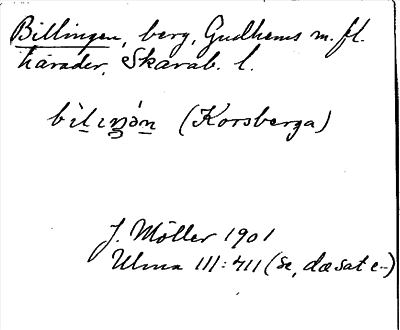 Billingen, berg, Gudhems m. fl.
härader, Skarab. l.
bìlıŋə́n (Korsberga)
J. Möller 1901
Ulma III: 411 (se, då sat e..)